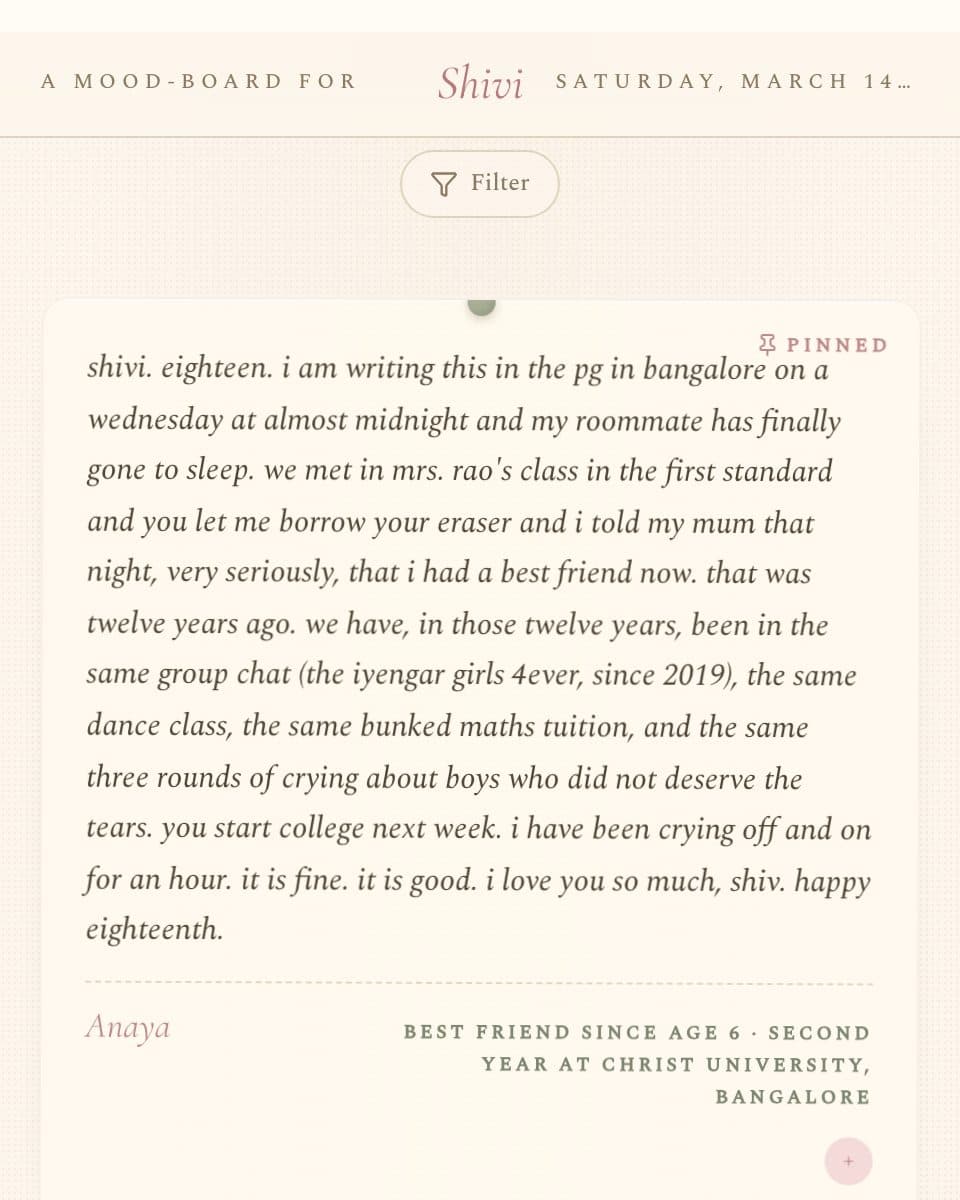 A MOOD-BOARD FOR
Shivi
SATURDAY, MARCH 14…
Filter
PINNED
shivi. eighteen. i am writing this in the pg in bangalore on a
wednesday at almost midnight and my roommate has finally
gone to sleep. we met in mrs. rao's class in the first standard
and you let me borrow your eraser and i told my mum that
night, very seriously, that i had a best friend now. that was
twelve years ago. we have, in those twelve years, been in the
same group chat (the iyengar girls 4ever, since 2019), the same
dance class, the same bunked maths tuition, and the same
three rounds of crying about boys who did not deserve the
tears. you start college next week. i have been crying off and on
for an hour. it is fine. it is good. i love you so much, shiv. happy
eighteenth.
Anaya
BEST FRIEND SINCE AGE 6 · SECOND
YEAR AT CHRIST UNIVERSITY,
BANGALORE
+